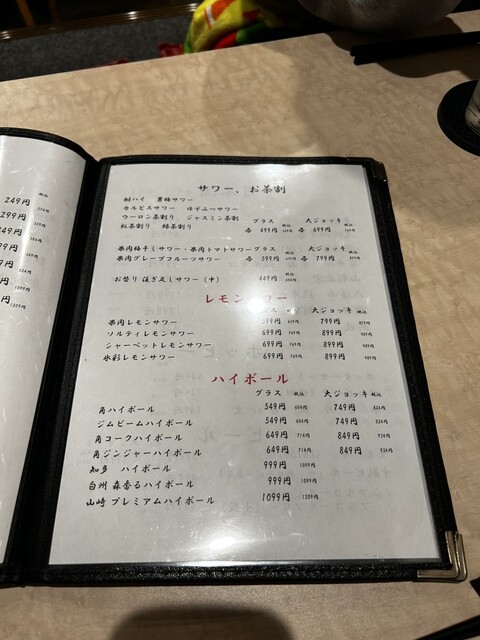 249円 税込
299円
249円
349円
サワー、お茶割
酎ハイ 男梅サワー
カルピスサワー ゆずみつサワー
ウーロン茶割り ジャスミン茶割 グラス 大ジョッキ
紅茶割り 緑茶割り 各 499円 各 699円
果肉梅干しサワー・果肉トマトサワー グラス 税込 大ジョッキ 税込
果肉グレープフルーツサワー 各 599円 各 799円
お替り 注ぎ足しサワー（中） 449円
レモンサワー
グラス 税込 大ジョッキ 税込
果肉レモンサワー 599円 659円 799円 879円
ソルティレモンサワー 699円 769円 899円 989円
シャーベットレモンサワー 699円 769円 899円 989円
氷彩レモンサワー 699円 769円 899円 989円
ハイボール
グラス 税込 大ジョッキ 税込
角ハイボール 549円 604円 749円 824円
ジムビームハイボール 549円 604円 749円 824円
角コークハイボール 649円 714円 849円 934円
角ジンジャーハイボール 649円 714円 849円 934円
知多 ハイボール 999円 1099円
白州 森香るハイボール 999円 1099円
山崎 プレミアムハイボール 1099円 1209円